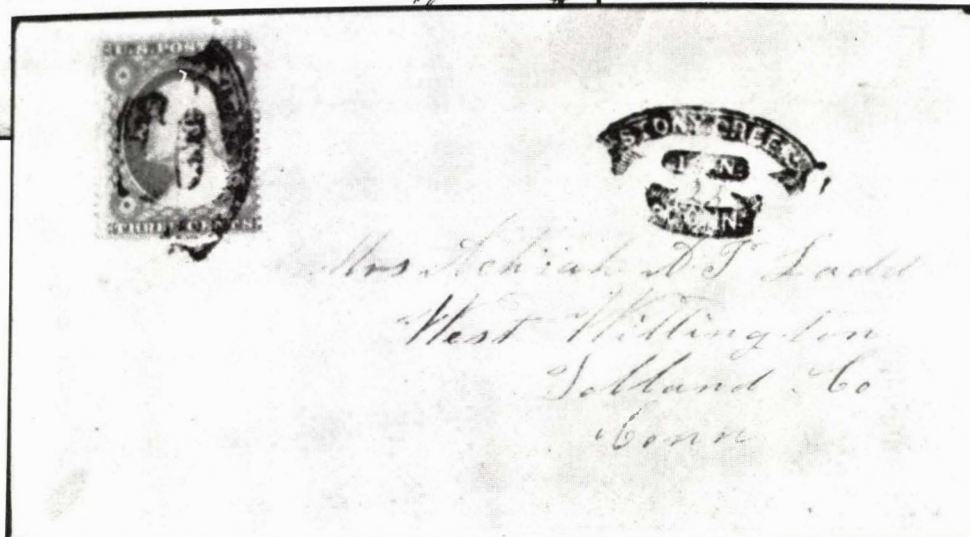 U.S. POSTAGE
THREE CENTS
STONY CREEK
JAN
CONN.
Mrs A P Ladd
West Willington
Tolland Co
Conn